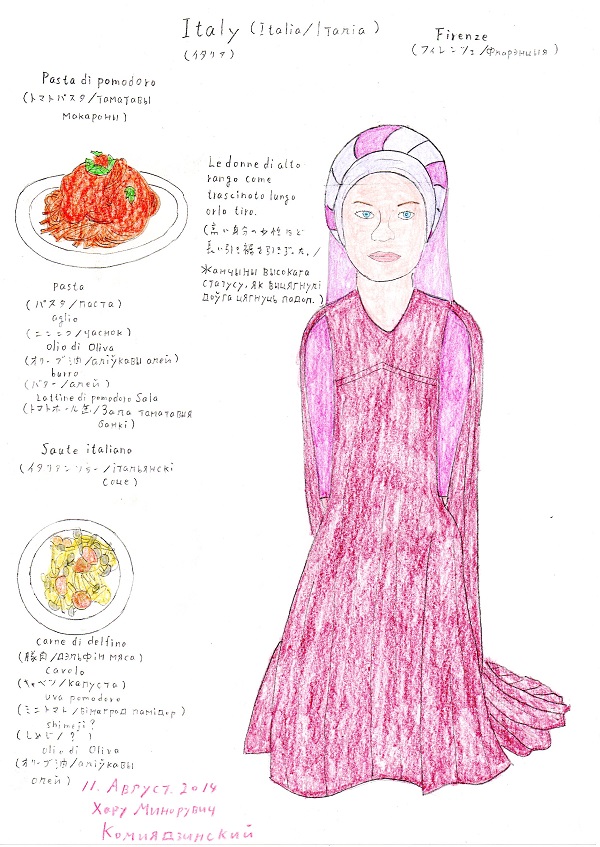 Italy (Italia/Італія)
(イタリア)
Firenze
(フィレンツェ/Фларэнцыя)
Pasta di pomodoro
(トマトパスタ/таматавы
макароны)
Le donne di alto
rango come
trascinato lungo
orlo tiro.
(高い身分の女性ほど
長い引き裾を引きずった。/
Жанчыны высокага
статусу, як выцягнулі
доўга цягнуць падол.)
Pasta
(パスタ/паста)
aglio
(ニンニク/часнок)
Olio di Oliva
(オリーブ油/аліўкавы алей)
burro
(バター/алей)
Lattine di pomodoro Sala
(トマトホール缶/Зала таматавыя
банкі)
Saute italiano
(イタリアンソテー/італьянскі
соце)
carne di delfino
(豚肉/дэльфін мяса)
cavolo
(キャベツ/капуста)
uva pomodoro
(ミニトマト/вінаград памідор)
shimeji?
(しめじ/?)
olio di Oliva
(オリーブ油/аліўкавы
алей)
11. Август. 2014
Хару Минорувич
Комиядзинский